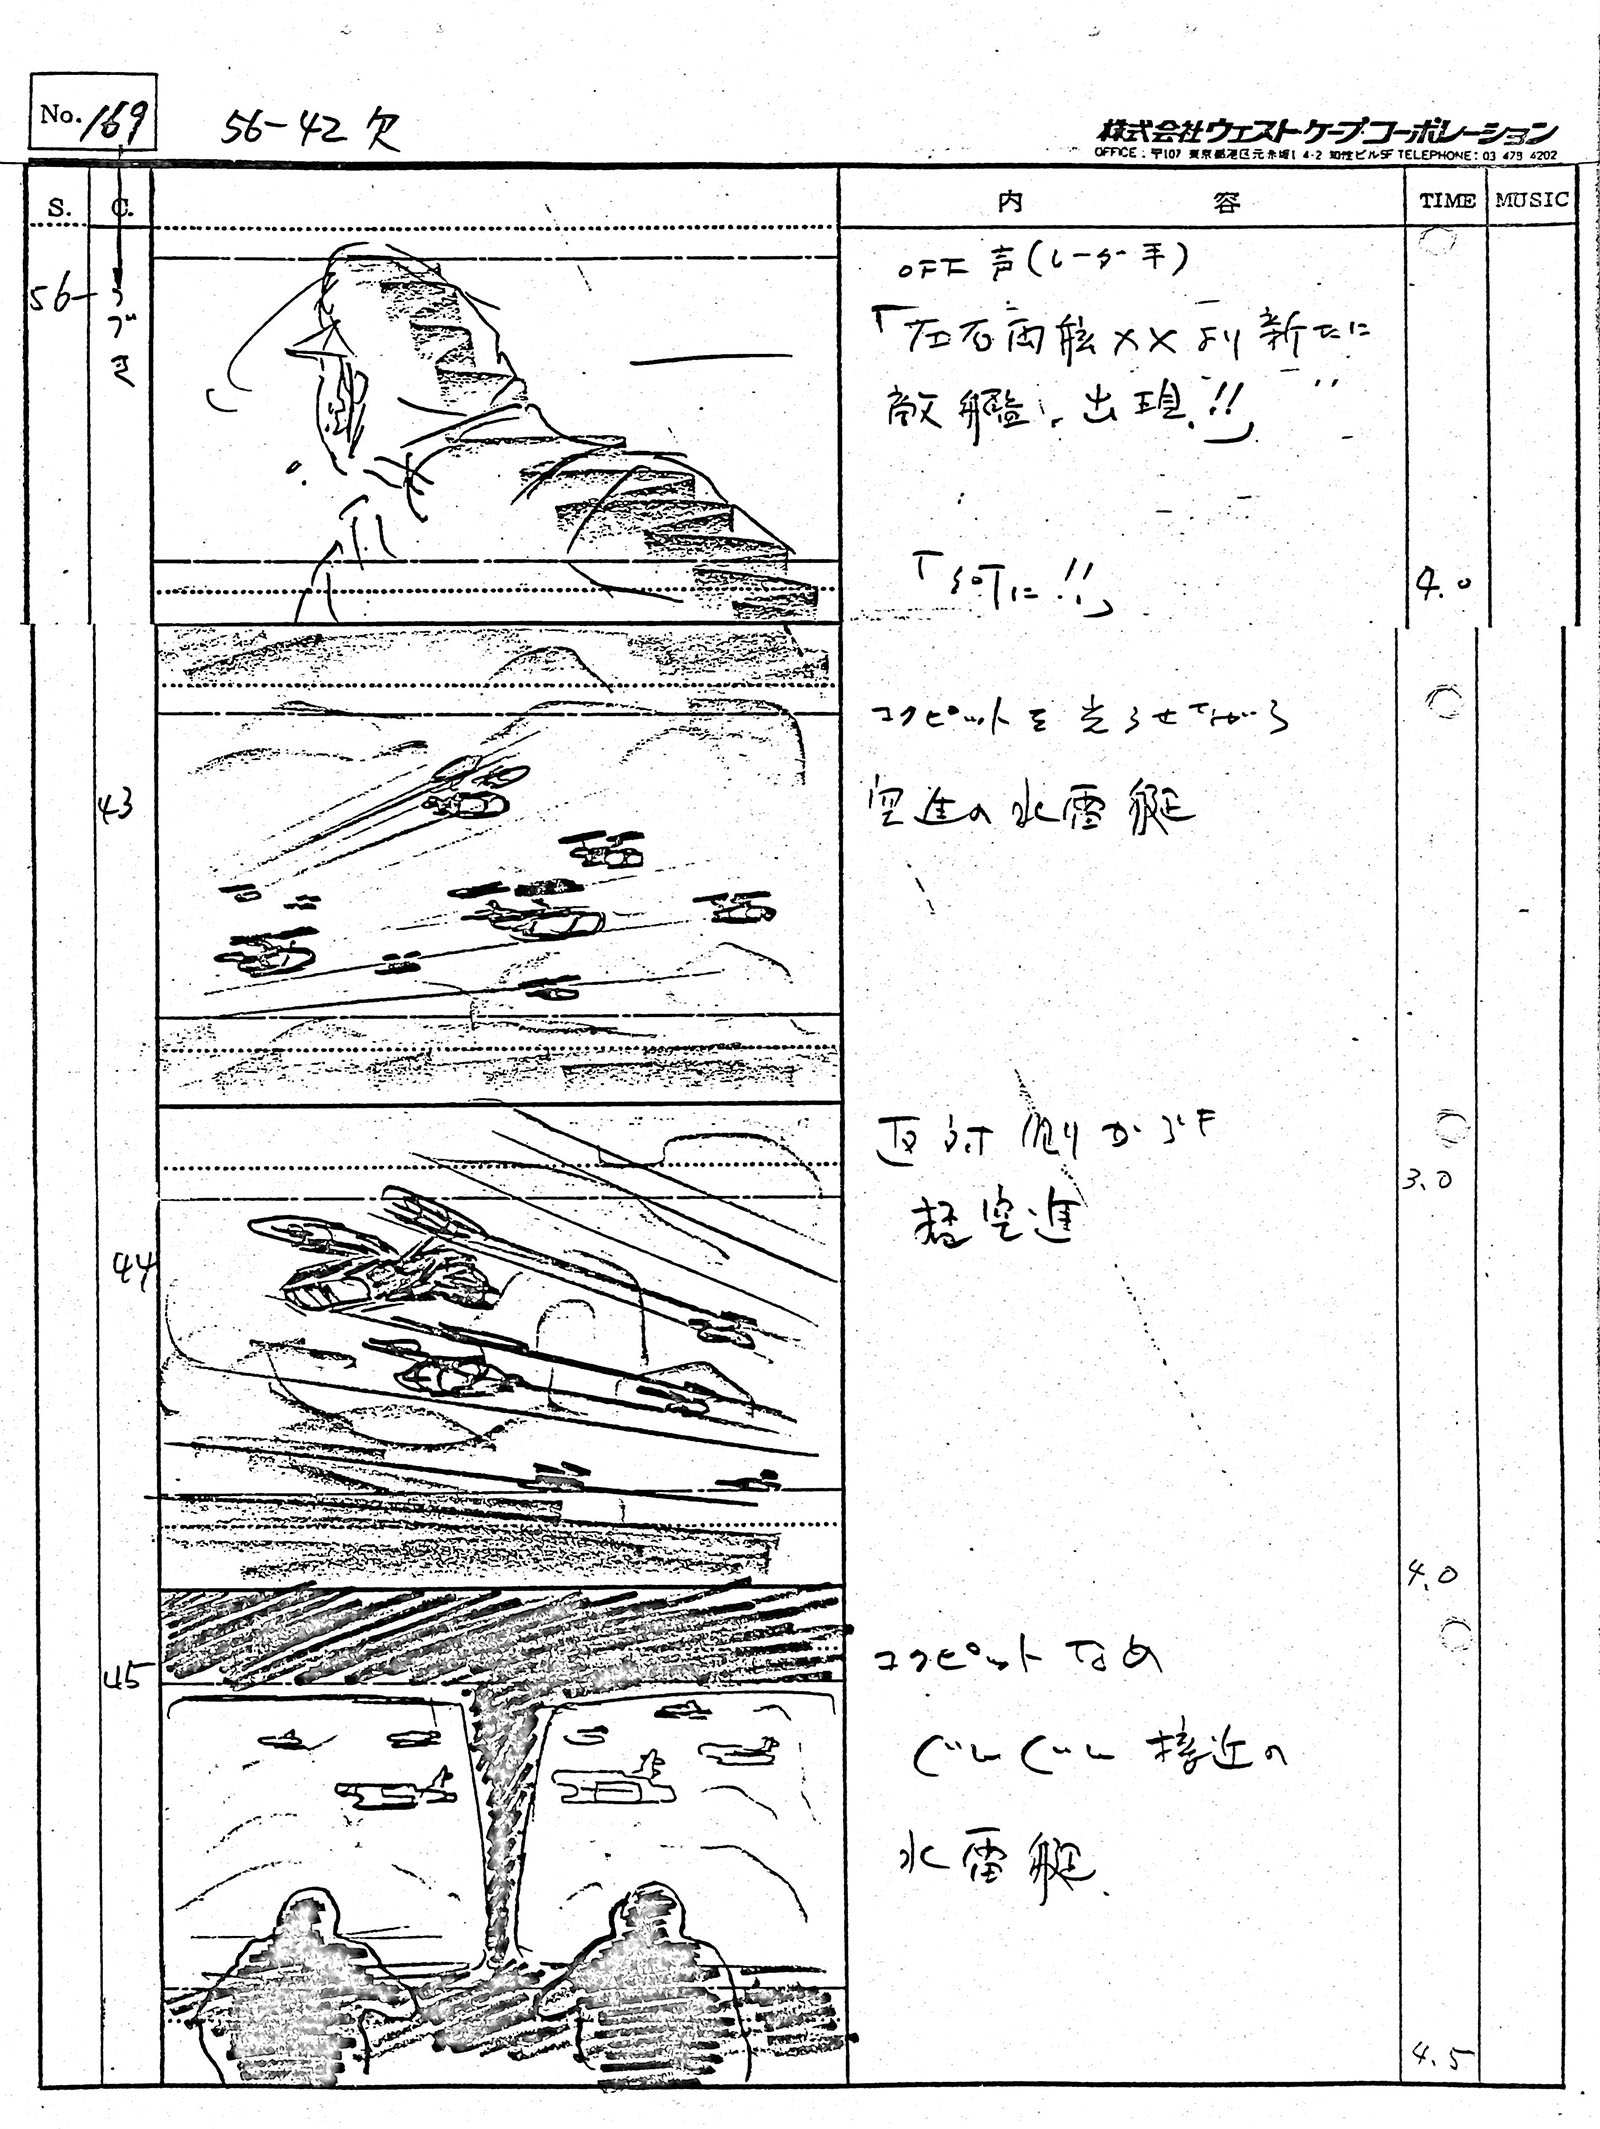 No. 169
56-42 欠
株式会社ウエスト・ケープ・コーポレーション
OFFICE: 〒107 東京都港区元赤坂1 4-2 知性ビル5F TELEPHONE: 03 479 4202
S. C. 内 容 TIME MUSIC
56- つづき
OFF 声(レーダー手)
「左右両舷××より新たに
敵艦、出現!!」
「何に!!」
4.0
43
コクピットを光らせながら
突進の水雷艇
3.0
44
反対側から
猛突進
4.0
45
コクピットなめ
ぐいぐい接近の
水雷艇
4.5